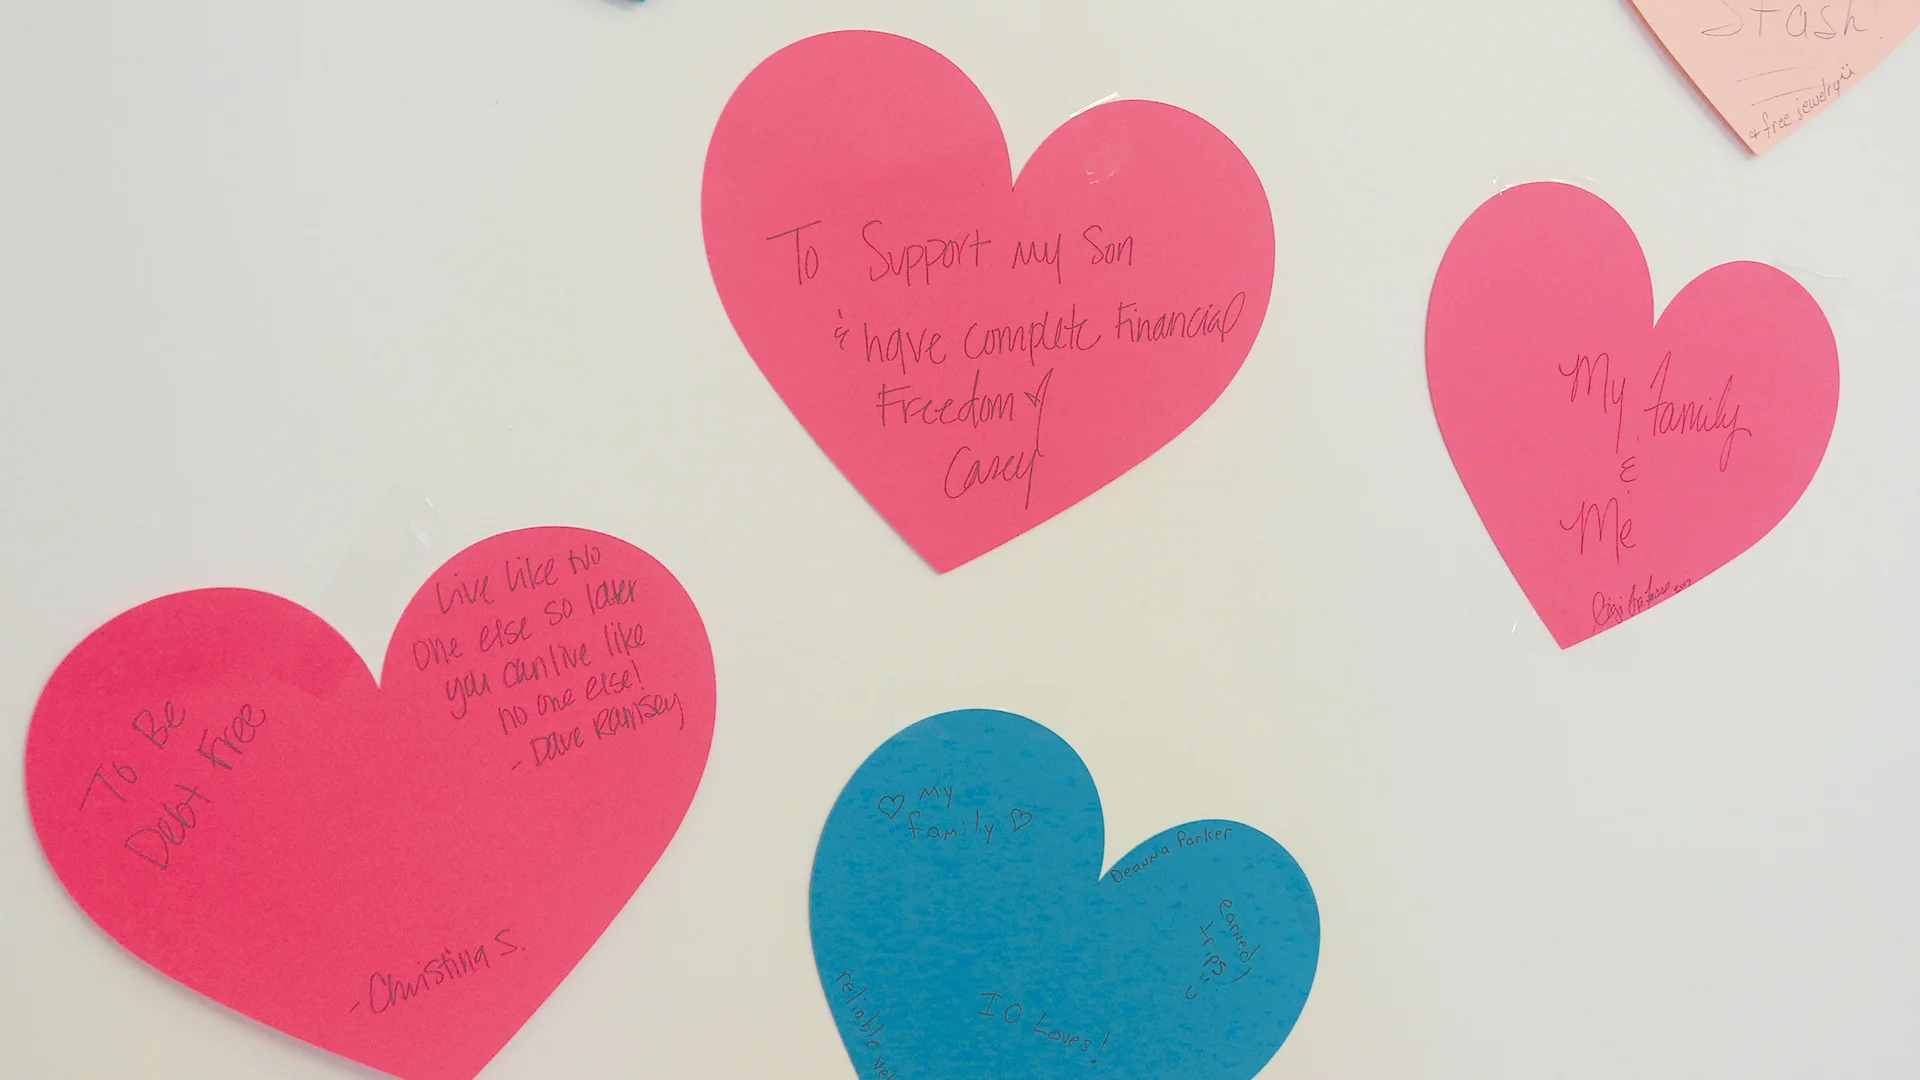 Stash!
+ free jewelry
To Support my Son
& have complete Financial
Freedom
Casey
My family
&
Me
Live like No
one else so later
you can live like
no one else!
- Dave Ramsey
To Be
Debt Free
- Christina S.
My
family
Deanna Parker
earned
trips
IO Loves!
reliable